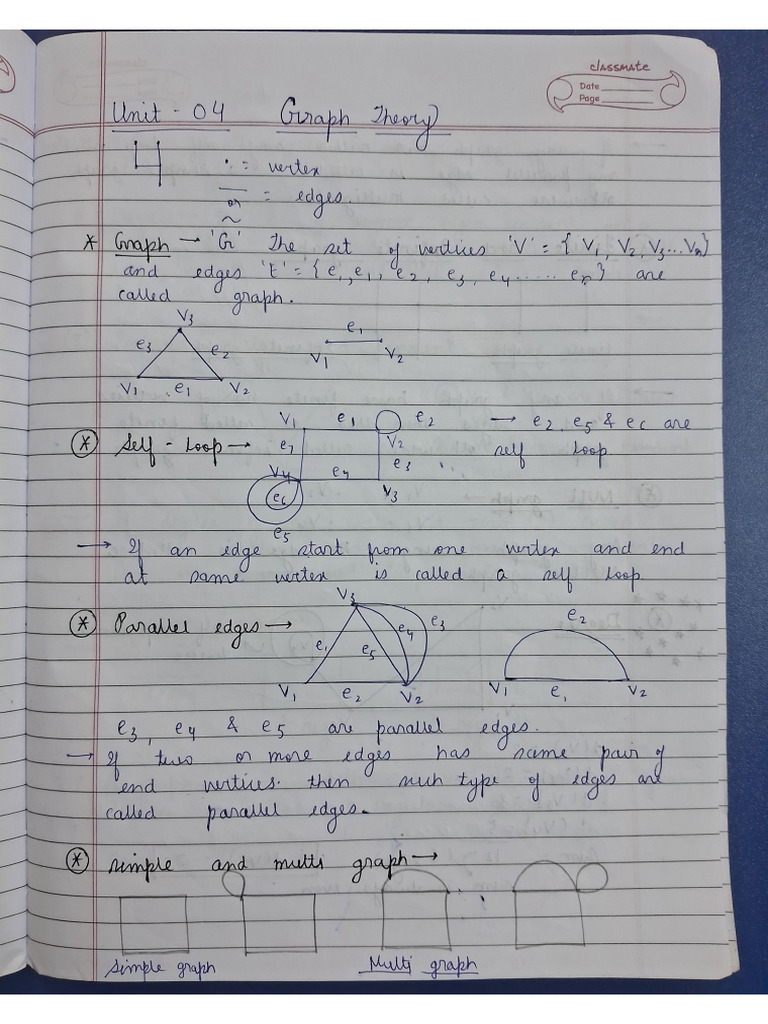 classmate
Date
Page
Unit - 04 Graph Theory
4 • = vertex
— or ~ = edges.
* Graph → 'G' The set of vertices 'V' = { V1, V2, V3...Vn}
and edges 'E' = {e1, e1, e2, e3, e4...... en} are
called graph.
V3
e3 e2
V1 e1 V2
e1
V1 V2
V1 e1 e2 → e2, e5 & e6 are
* Self-Loop → e7 V2 self loop
V4 e4 e3
e6 V3
e5
→ If an edge start from one vertex and end
at same vertex is called a self loop
V3
* Parallel edges →
e1 e5 e4 e3
V1 e2 V2
e2
V1 e1 V2
e3, e4 & e5 are parallel edges.
→ If two or more edges has same pair of
end vertices. then such type of edges are
called parallel edges.
* simple and multi graph →
simple graph Multi graph